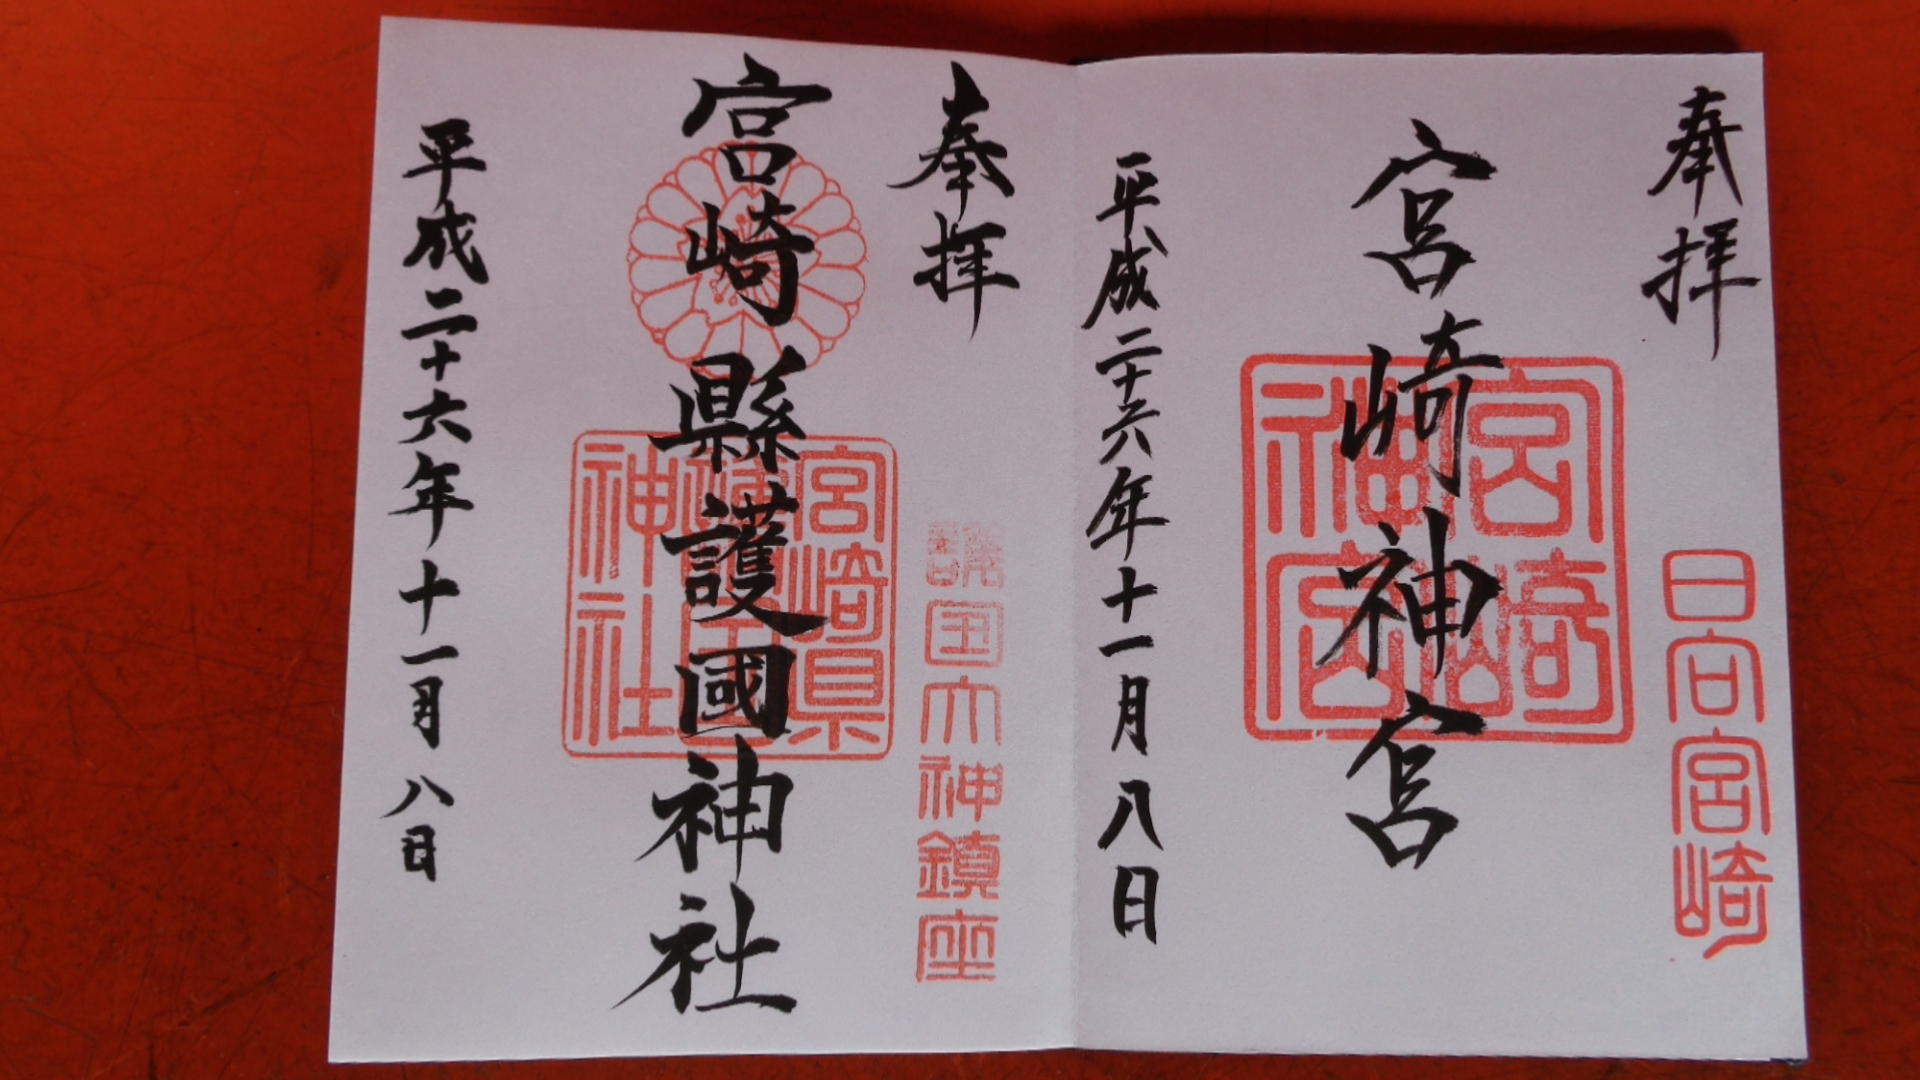 奉拝
日向宮崎
宮崎神宮
宮崎神宮
平成二十六年十一月八日
奉拝
護国大神鎮座
宮崎縣護國神社
宮崎県
護国
神社
平成二十六年十一月八日